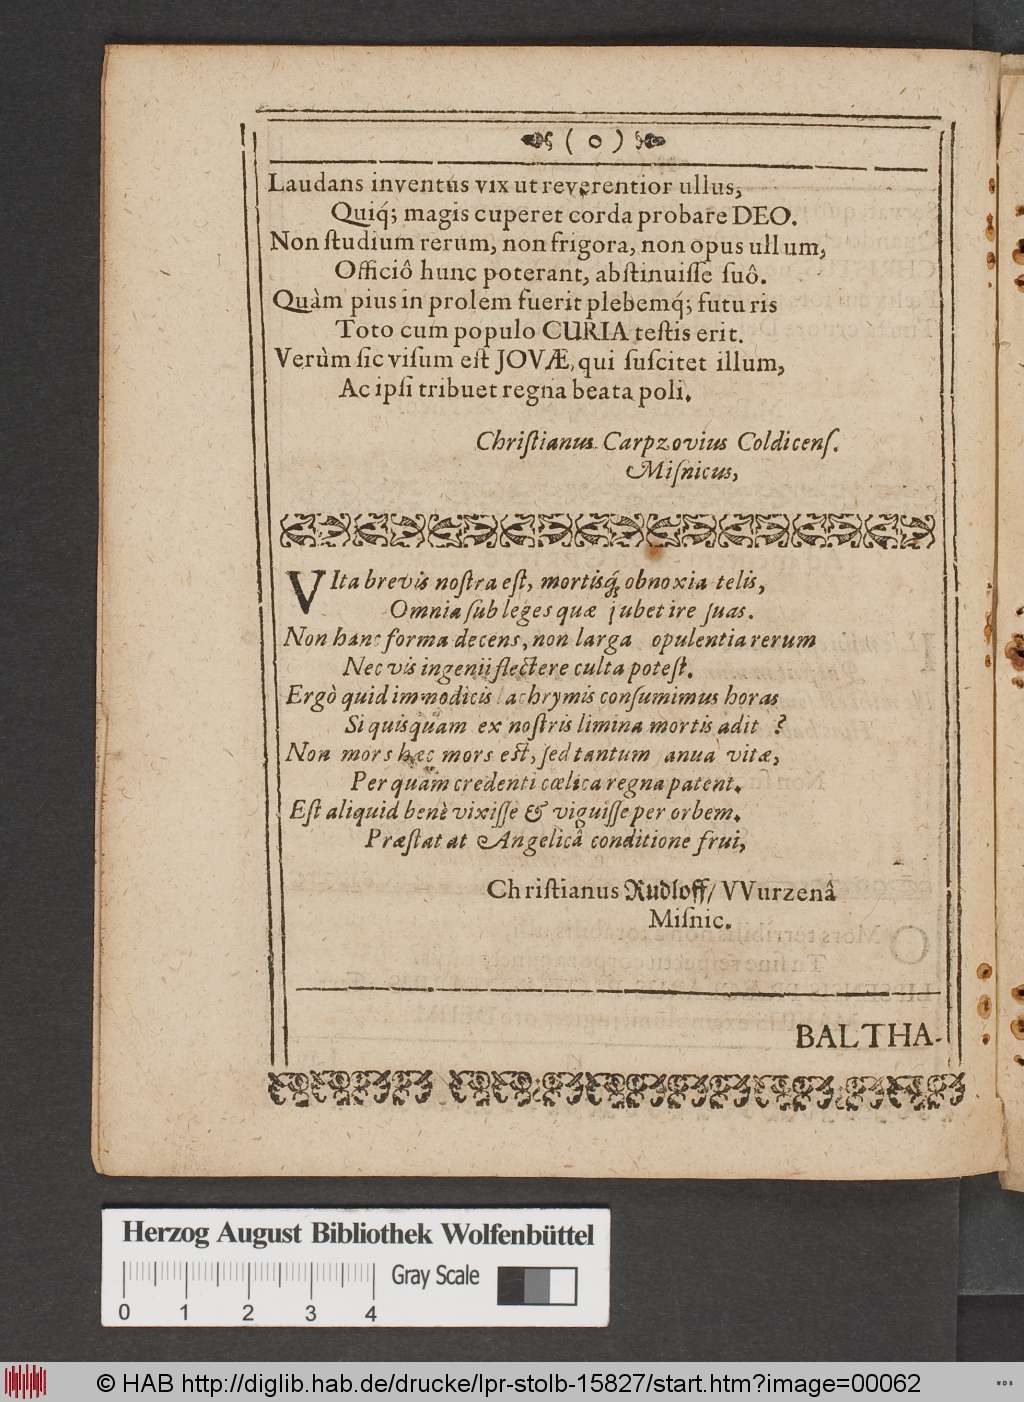 ( o )
Laudans inventus vix ut reverentior ullus,
Quiq́; magis cuperet corda probare DEO.
Non ſtudium rerum, non frigora, non opus ullum,
Officiô hunc poterant, abſtinuiſſe ſuô.
Quàm pius in prolem fuerit plebemq́; futuris
Toto cum populo CURIA teſtis erit.
Verùm ſic viſum eſt JOVÆ, qui ſuſcitet illum,
Ac ipſi tribuet regna beata poli.
Chriſtianus Carpzovius Coldicenſ.
Miſnicus,
VIta brevis noſtra eſt, mortisq́; obnoxia telis,
Omnia ſub leges quæ jubet ire ſuas.
Non hanc forma decens, non larga opulentia rerum
Nec vis ingenii flectere culta poteſt.
Ergò quid immodicis lachrymis conſumimus horas
Si quisquam ex noſtris limina mortis adit ?
Non mors hæc mors eſt, ſed tantum anua vitæ,
Per quam credenti cœlica regna patent.
Eſt aliquid benè vixiſſe & viguiſſe per orbem.
Præſtat at Angelicâ conditione frui,
Chriſtianus Rudloff/ VVurzenâ
Miſnic.
BALTHA-
Herzog August Bibliothek Wolfenbüttel
Gray Scale
0 1 2 3 4
© HAB http://diglib.hab.de/drucke/lpr-stolb-15827/start.htm?image=00062